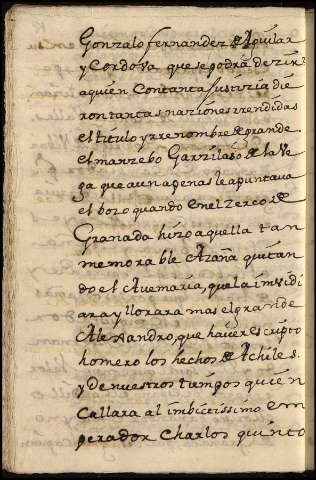 Gonzalo fernandez de Aguilar
y Cordova que se podra dezir
a quien con tanta justizia die
ron tantas naziones rrendidas
el titulo y rrenombre de grande.
el manzebo Garzilaso de la Ve
ga que aun apenas le apuntava
el bozo quando en el zerco de
Granada hizo aquella tan
memorable Azaña quitan
do el Avemaria, que la imvidi
ara y llorara mas el grande
Alexandro, que haver escripto
homero los hechos de Achiles.
y de nuestros tiempos quien
Callara al imbictissimo em
perador Charlos quinto